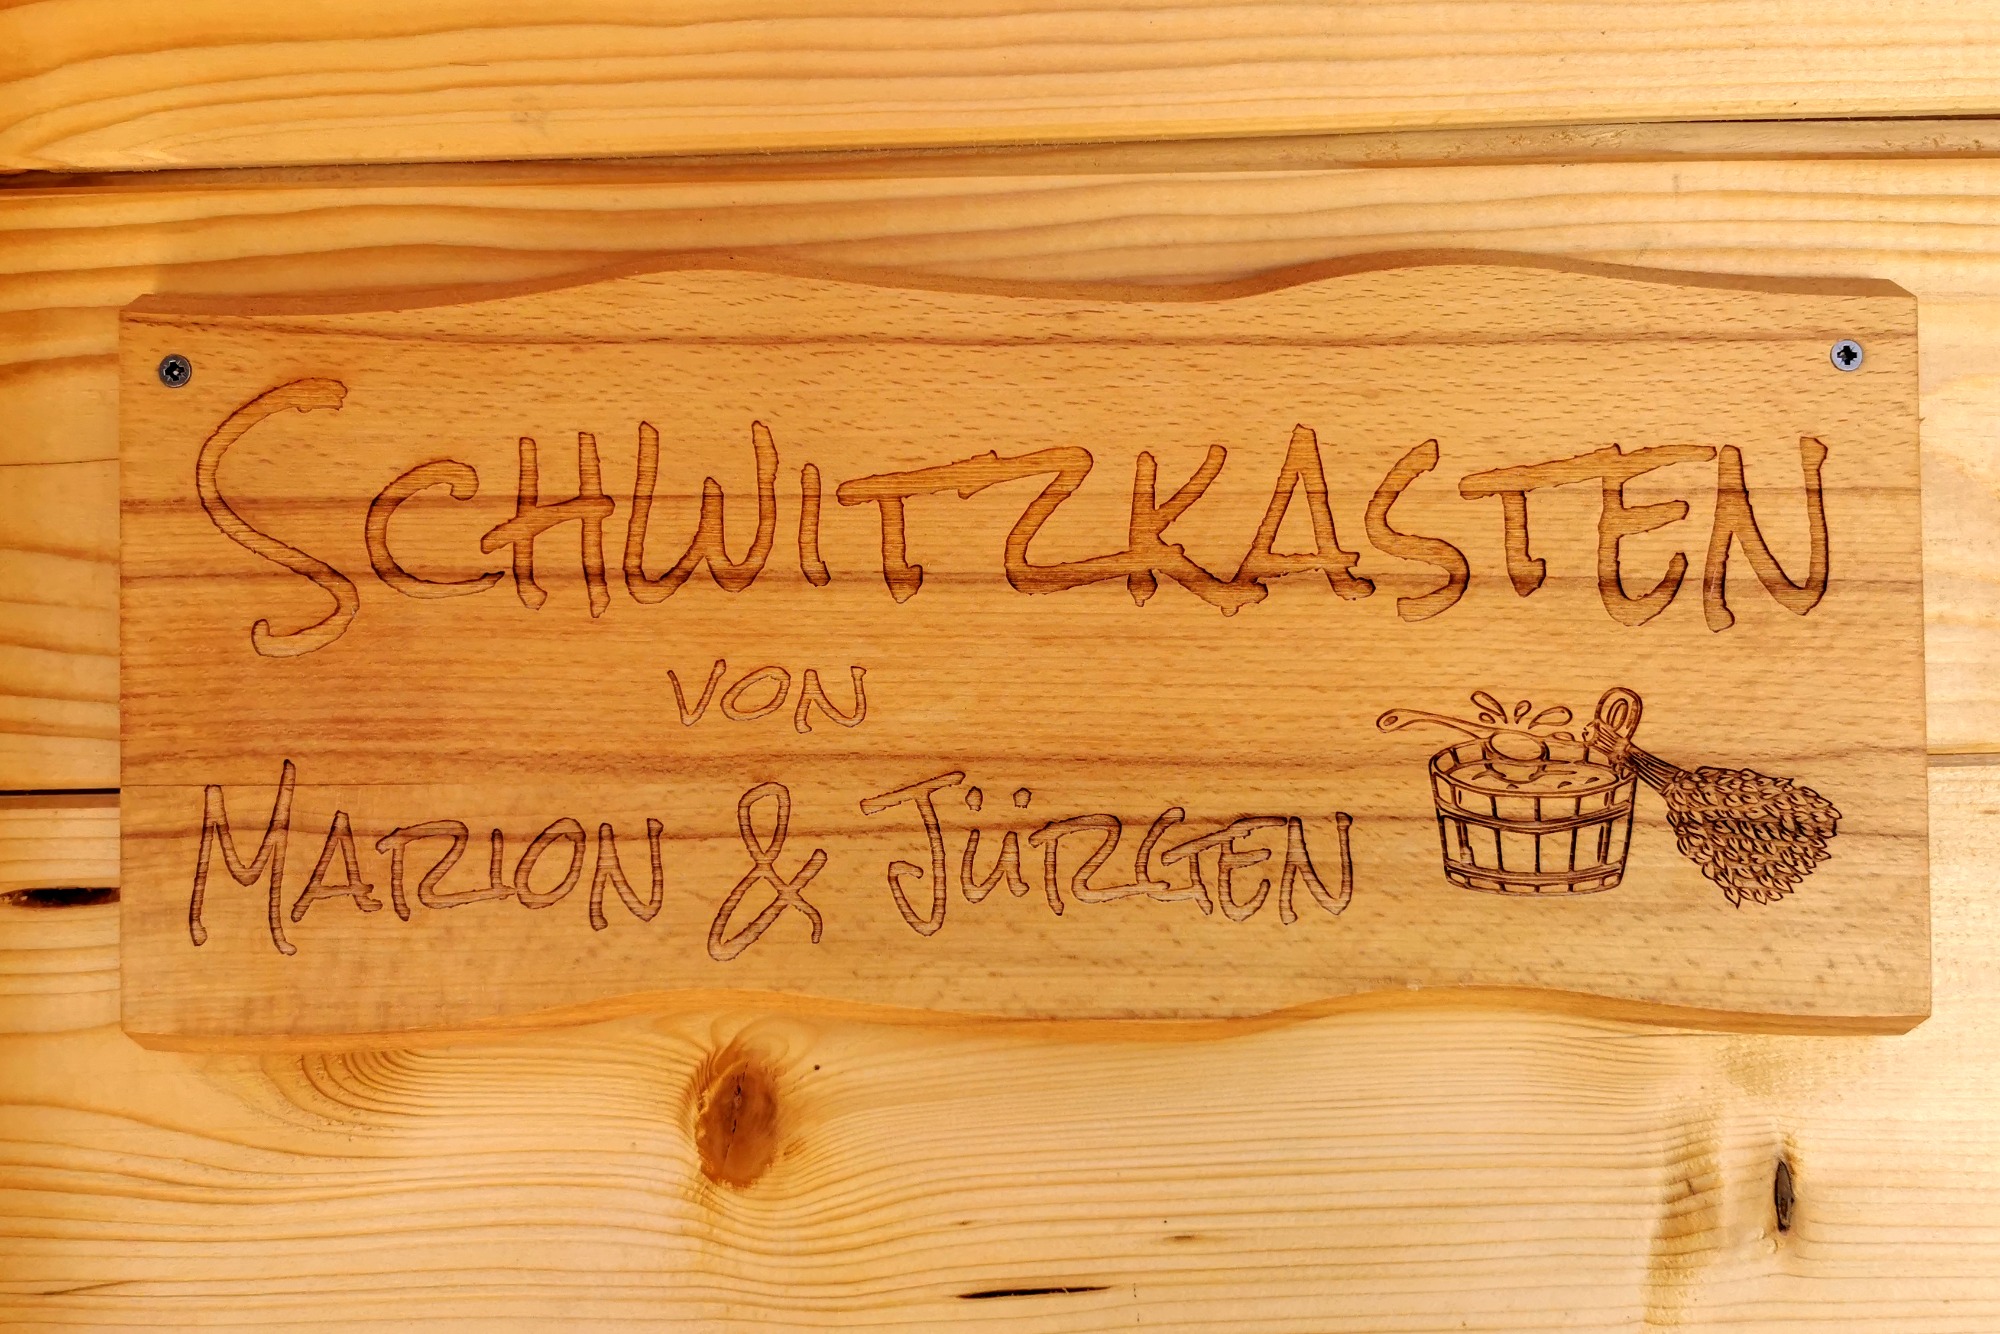 SCHWITZKASTEN
VON
MARION & JÜRGEN